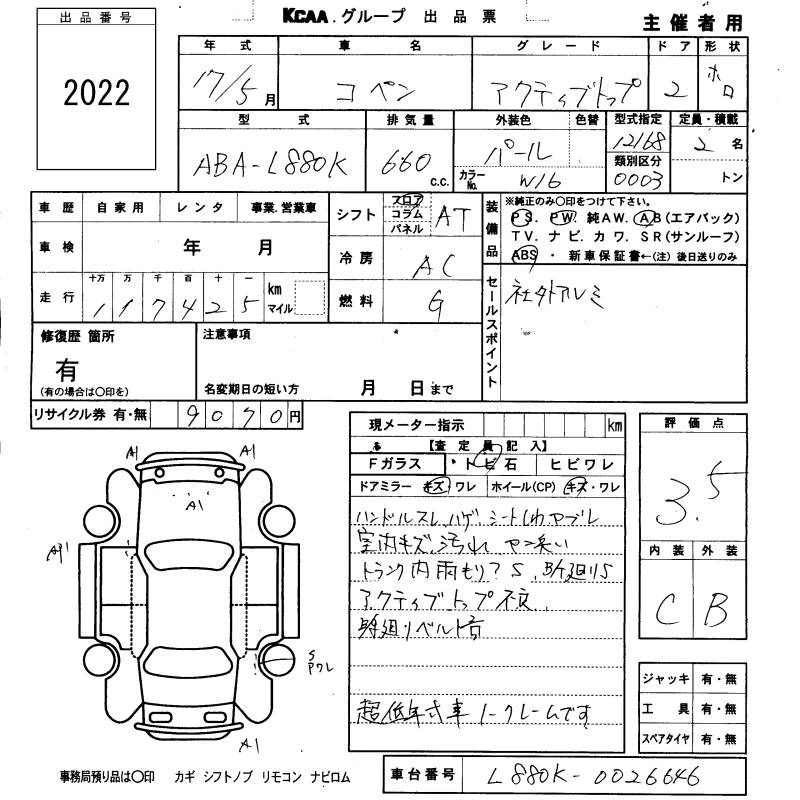 KCAA.グループ 出品票
主催者用
出品番号
2022
年式 車名 グレード ドア 形状
17/5月 コペン アクティブトップ 2 ホロ
型式 排気量 外装色 色替 型式指定 定員・積載
ABA-L880K 660c.c. パール 12168 2名
カラーNo. W16 類別区分 0003 トン
車歴 自家用 レンタ 事業.営業車
車検 年 月
走行 十万 万 千 百 十 一
1 1 7 4 2 5 km マイル
シフト フロア コラム パネル AT
冷房 AC
燃料 G
装備品 ※純正のみ〇印をつけて下さい。
PS. PW. 純AW. AB(エアバック)
TV. ナビ. カワ. SR(サンルーフ)
ABS ・ 新車保証書←(注)後日送りのみ
セールスポイント 社外アルミ
修復歴 箇所
有
(有の場合は〇印を)
注意事項
名変期日の短い方 月 日まで
リサイクル券 有・無 9070円
現メーター指示 km
【査定員記入】
Fガラス ・トビ石 ヒビワレ
ドアミラー キズ・ワレ ホイール(CP) キズ・ワレ
ハンドルスレ,ハゲ シートしわ ヤブレ
室内キズ,汚れ ヤニ臭い
トランク内雨もり? S
アクティブトップ不良
廻りベルト音
超低年式車ノークレームです
評価点
3.5
内装 外装
C B
ジャッキ 有・無
工具 有・無
スペアタイヤ 有・無
A1 A1
A1
A1
S
Pワレ
A1
事務局預り品は〇印 カギ シフトノブ リモコン ナビロム
車台番号 L880K-0026646